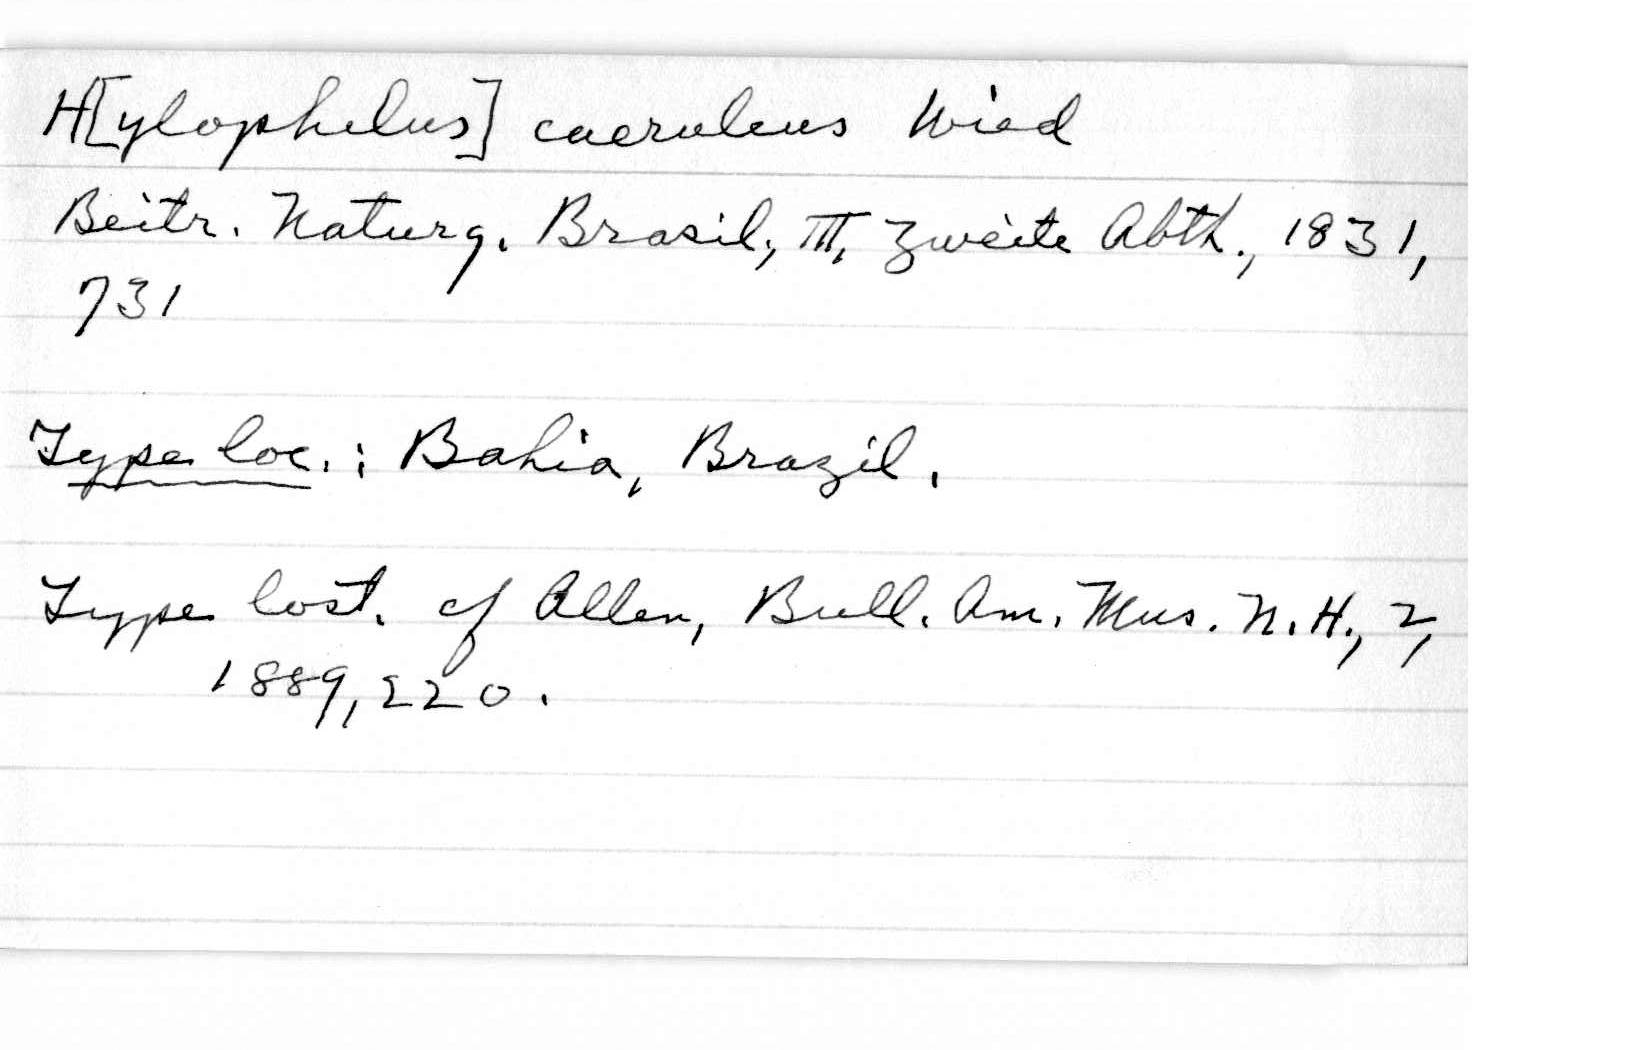 H[ylophilus] caeruleus Wied
Beitr. Naturg. Brasil, III, Zweite Abth., 1831,
731
Type loc. : Bahia, Brazil.
Type lost. cf Allen, Bull. Am. Mus. N.H., 2,
1889, 220.